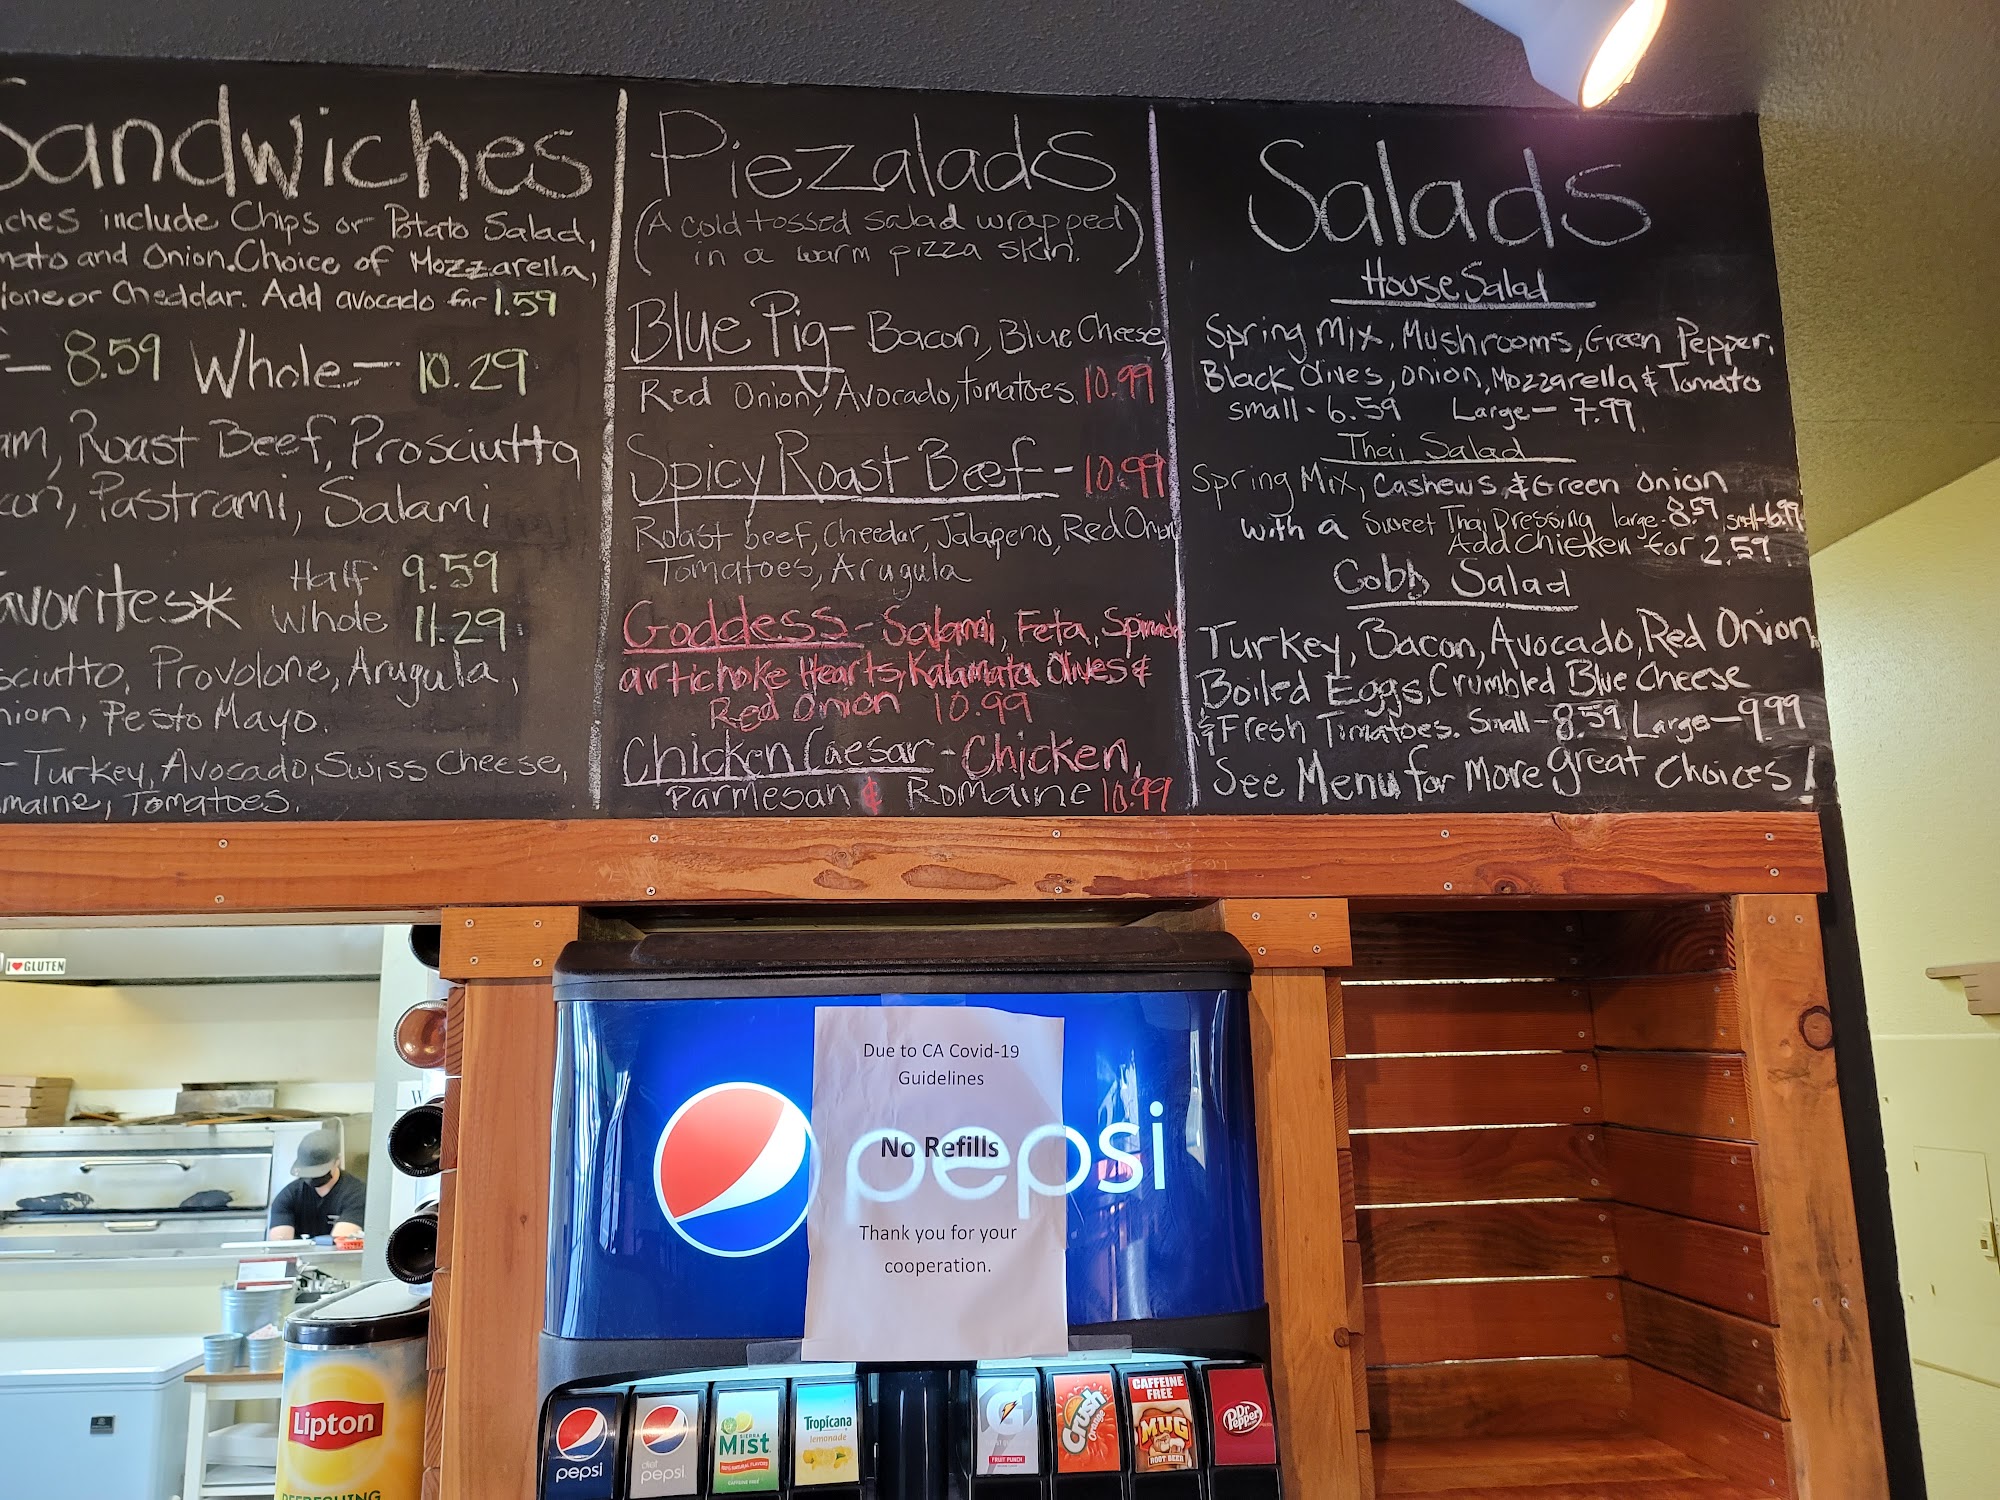 Sandwiches
iches include Chips or Potato Salad,
mato and Onion. Choice of Mozzarella,
lone or Cheddar. Add avocado for 1.59
- 8.59 Whole - 10.29
am, Roast Beef, Prosciutto
con, Pastrami, Salami
avorites* Half 9.59
Whole 11.29
sciutto, Provolone, Arugula,
nion, Pesto Mayo.
- Turkey, Avocado, Swiss Cheese,
maine, Tomatoes.
Piezalads
(A cold tossed salad wrapped
in a warm pizza skin.)
Blue Pig - Bacon, Blue Cheese,
Red Onion, Avocado, tomatoes. 10.99
Spicy Roast Beef - 10.99
Roast beef, Cheedar, Jalapeno, Red Onion
Tomatoes, Arugula
Goddess - Salami, Feta, Spinach
artichoke Hearts, Kalamata Olives &
Red Onion 10.99
Chicken Caesar - Chicken,
Parmesan & Romaine 10.99
Salads
House Salad
Spring Mix, Mushrooms, Green Pepper,
Black Olives, onion, Mozzarella & Tomato
small - 6.59 Large - 7.99
Thai Salad
Spring Mix, Cashews, & Green Onion
with a Sweet Thai Dressing large - 8.59 small - 6.99
Add Chicken for 2.59
Cobb Salad
Turkey, Bacon, Avocado, Red Onion,
Boiled Eggs, Crumbled Blue Cheese
& Fresh Tomatoes. Small - 8.59 Large - 9.99
See Menu for More great Choices!
I ♥ GLUTEN
W
Due to CA Covid-19
Guidelines
No Refills
Thank you for your
cooperation.
pepsi
Lipton
REFRESHING
pepsi
diet
pepsi
SIERRA
Mist
CAFFEINE FREE
Tropicana
lemonade
G
FRUIT PUNCH
Crush
Orange
CAFFEINE
FREE
MUG
ROOT BEER
Dr
Pepper